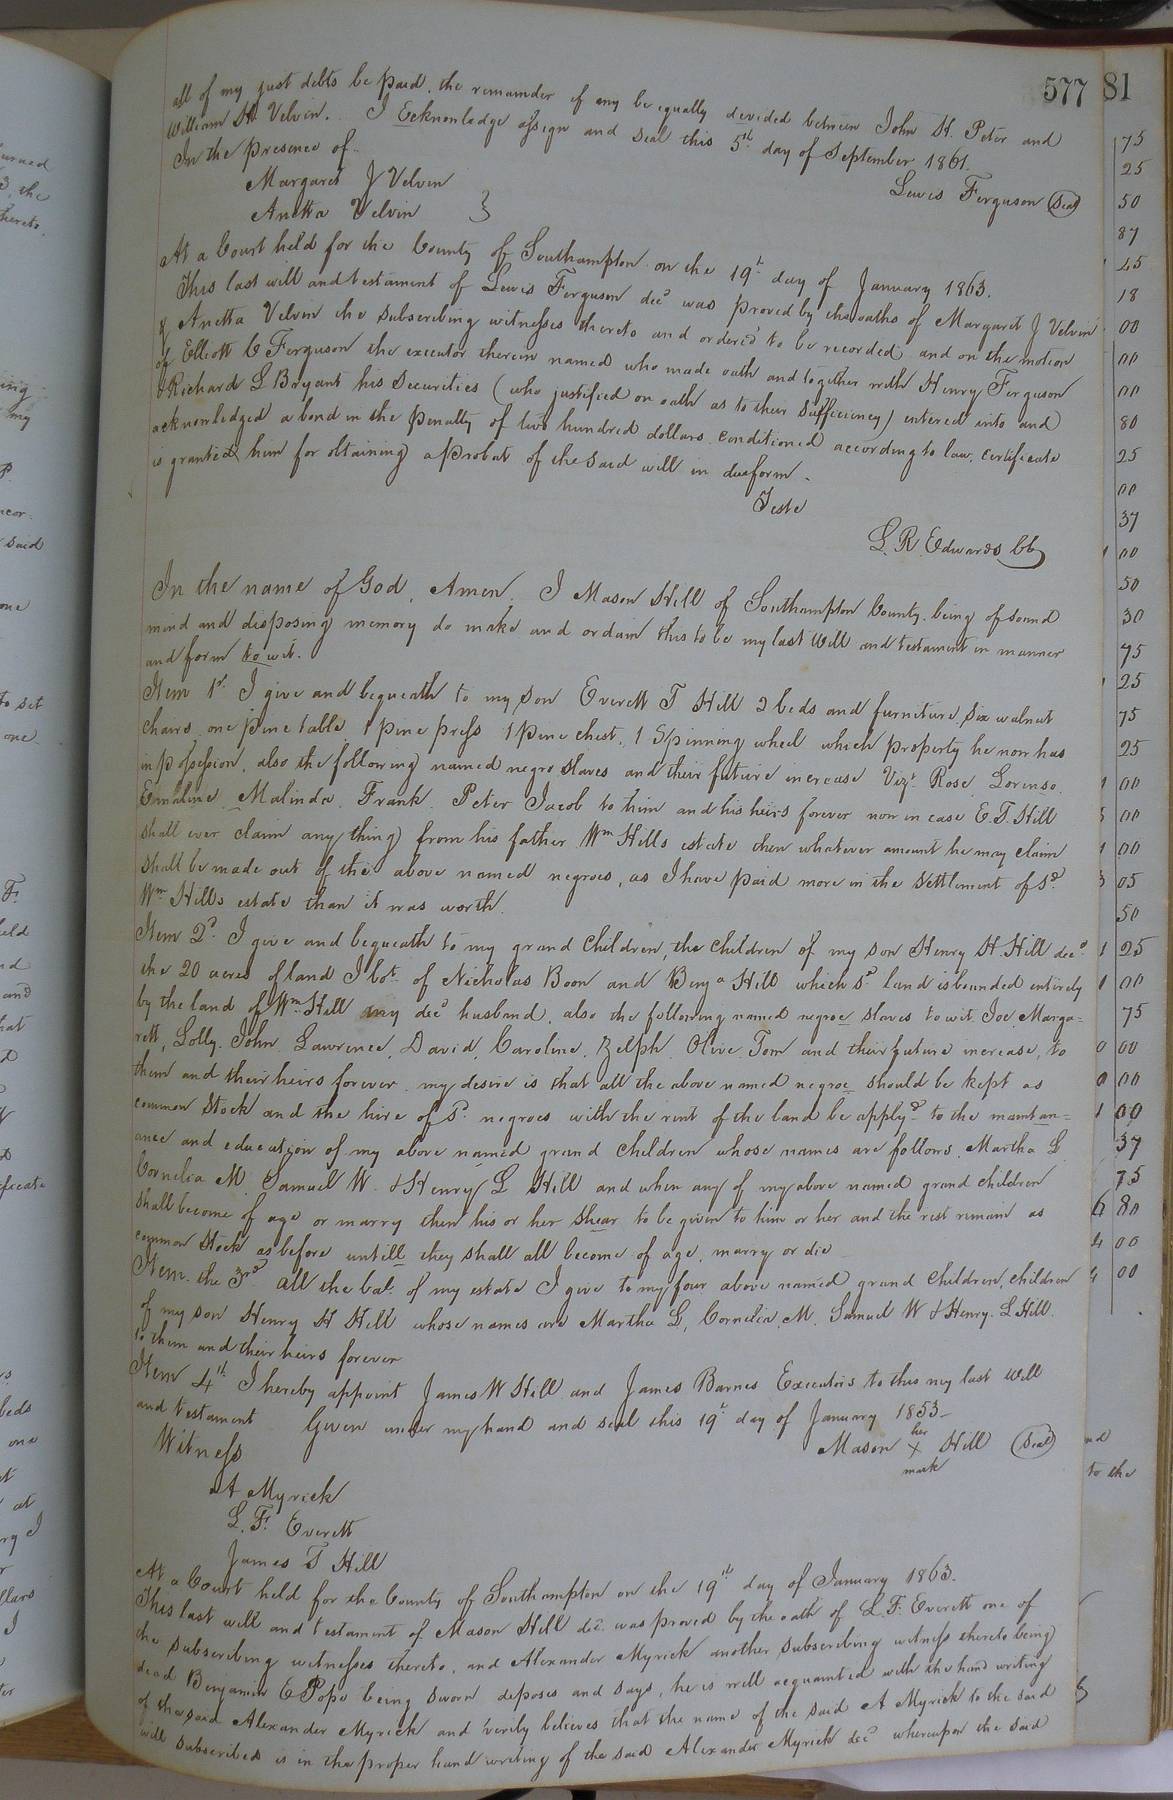 577
all of my just debts be paid, the remainder if any be equally devided between John H. Peter and
William H. Velvin. I Ecknowledge assign and seal this 5th day of September 1861.
In the presence of
Lewis Ferguson (Seal)
Margaret J Velvin
Anetta Velvin }
At a Court held for the County of Southampton on the 19th day of January 1863.
This last will and testament of Lewis Ferguson decd was proved by the oaths of Margaret J Velvin
& Anetta Velvin the subscribing witnesses thereto and ordered to be recorded and on the motion
of Elliott C Ferguson the executor therein named who made oath and together with Henry Ferguson
& Richard L Bryant his securities (who justified on oath as to their sufficiency) entered into and
acknowledged a bond in the penalty of two hundred dollars conditioned according to law, certificate
is granted him for obtaining a probat of the said will in due form.
Teste
L. R. Edwards CC
In the name of God, Amen. I Mason Hill of Southampton County being of sound
mind and disposing memory do make and ordain this to be my last Will and testament in manner
and form to wit.
Item 1st I give and bequeath to my son Everett T Hill 2 beds and furniture, six walnut
chairs one pine table 1 pine press 1 pine chest, 1 Spinning wheel which property he now has
in possession, also the following named negro slaves and their future increase Viz. Rose, Lorenso,
Emaline, Malinda, Frank, Peter Jacob to him and his heirs forever now in case E. T. Hill
shall ever claim any thing from his father Wm Hills estate then whatever amount he may claim
shall be made out of the above named negroes, as I have paid more in the settlement of sd
Wm Hills estate than it was worth.
Item 2d I give and bequeath to my grand children, the children of my son Henry H. Hill decd
the 20 acres of land I bot of Nicholas Boon and Benja Hill which sd land is bounded entirely
by the land of Wm Hill my decd husband, also the following named negroe slaves to wit. Joe, Marga=
rett, Lolly, John, Lawrence, David, Caroline, Zelph, Olive, Tom and their future increase, to
them and their heirs forever my desire is that all the above named negroe should be kept as
common stock and the hire of sd negroes with the rent of the land be applyd to the maintan=
ance and education of my above named grand children whose names are follows, Martha L
Cornelia M, Samuel W. & Henry L Hill and when any of my above named grand children
shall become of age or marry then his or her shear to be given to him or her and the rest remain as
common stock as before untill they shall all become of age, marry or die
Item the 3rd all the bal. of my estate I give to my four above named grand children, children
of my son Henry H Hill whose names are Martha L, Cornelia, M. Samuel W & Henry. L Hill.
to them and their heirs forever
Item 4th I hereby appoint James W Hill and James Barnes Executors to this my last Will
and testament Given under my hand and seal this 19th day of January 1853—
Witness
Mason her X mark Hill (Seal)
A Myrick
L. F. Everett
James T Hill
At a Court held for the County of Southampton on the 19th day of January 1863.
This last will and testament of Mason Hill decd was proved by the oath of L. F. Everett one of
the subscribing witnesses thereto, and Alexander Myrick another subscribing witness thereto being
dead Benjamin E Pope being sworn deposes and says, he is well acquainted with the hand writing
of the said Alexander Myrick and verily believes that the name of the said A Myrick to the said
will subscribed is in the proper hand writing of the said Alexander Myrick decd whereupon the said
81
75
25
50
87
45
18
00
00
00
80
25
00
37
00
50
30
75
25
75
25
00
00
00
05
50
25
00
75
00
00
00
37
75
80
00
00
to the